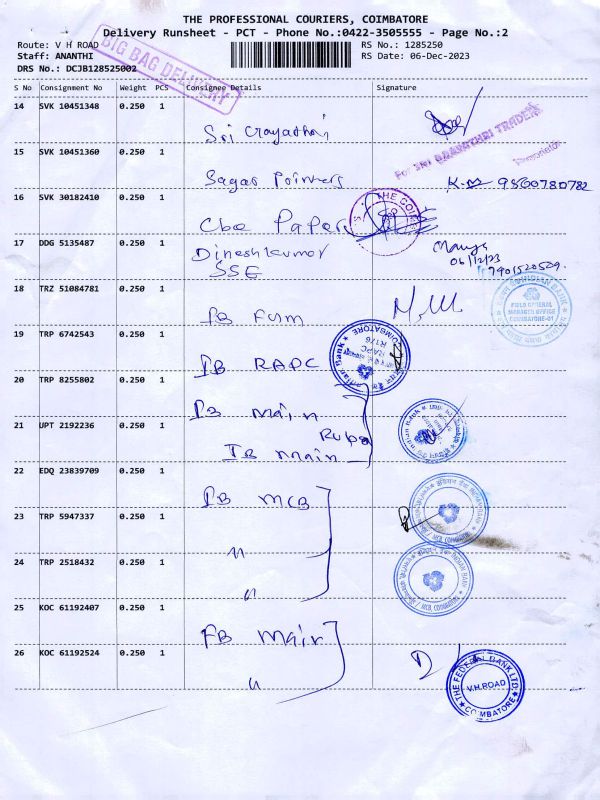 THE PROFESSIONAL COURIERS, COIMBATORE
Delivery Runsheet - PCT - Phone No.:0422-3505555 - Page No.:2
Route: V H ROAD
RS No.: 1285250
Staff: ANANTHI
RS Date: 06-Dec-2023
DRS No.: DCJB128525002
BIG BAG DELIVERY
S No Consignment No Weight PCS Consignee Details Signature
14 SVK 10451348 0.250 1
Sri Gayathri
For SRI GAYATHRI TRADERS
Proprietor
15 SVK 10451360 0.250 1
Sagar Poirners
9500780782
16 SVK 30182410 0.250 1
Cbe Paper
THE COIMB
17 DDG 5135487 0.250 1
Dineshkumar
SSE
06/12/23
7401520509.
18 TRZ 51084781 0.250 1
IB FGM
INDIAN BANK
FIELD GENERAL
MANAGER OFFICE
COIMBATORE-01
19 TRP 6742543 0.250 1
IB RAPC
Indian Bank
RAPC
R176
COIMBATORE
20 TRP 8255802 0.250 1
IB Main
Ruba
21 UPT 2192236 0.250 1
IB main
22 EDQ 23839709 0.250 1
IB MCB
इंडियन बैंक INDIAN BANK
MCB, COIMBATORE
23 TRP 5947337 0.250 1
"
24 TRP 2518432 0.250 1
"
इंडियन बैंक INDIAN BANK
MCB, COIMBATORE
25 KOC 61192407 0.250 1
FB Main
26 KOC 61192524 0.250 1
"
THE FEDERAL BANK LTD.
V.H.ROAD
COIMBATORE